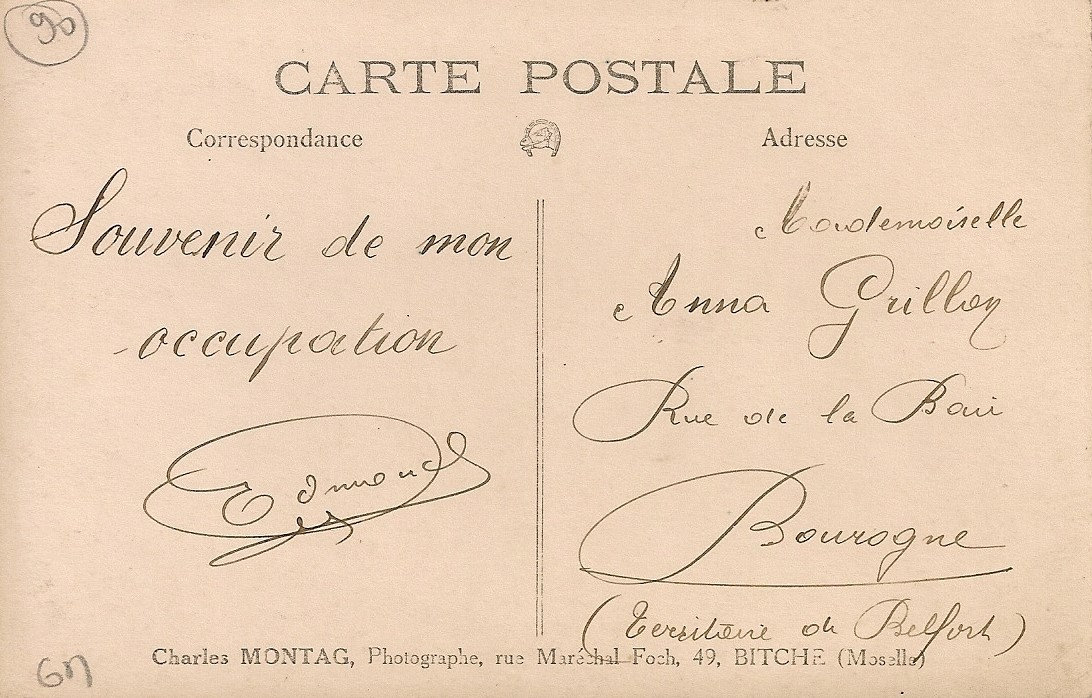 90
CARTE POSTALE
Correspondance
Souvenir de mon
occupation
Edmond
Adresse
Mademoiselle
Anna Grillon
Rue de la
Bourogne
(Territoire de Belfort)
Charles MONTAG, Photographe, rue Maréchal Foch, 49, BITCHE (Moselle)